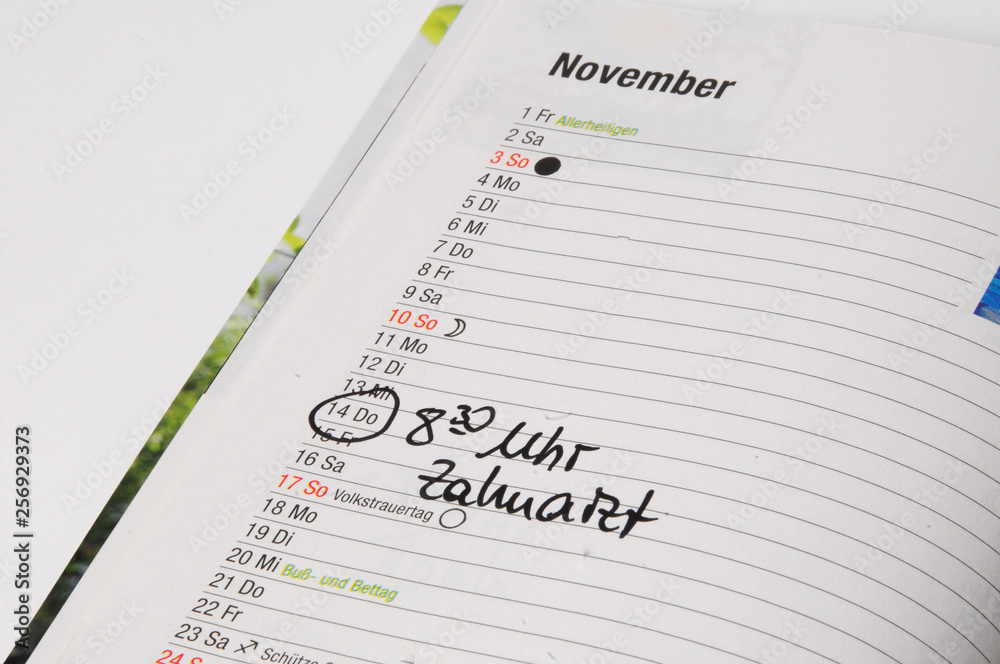 November
1 Fr Allerheiligen
2 Sa
3 So
4 Mo
5 Di
6 Mi
7 Do
8 Fr
9 Sa
10 So
11 Mo
12 Di
13 Mi
14 Do 8 30 Uhr
15 Fr
Zahnarzt
16 Sa
17 So Volkstrauertag
18 Mo
19 Di
20 Mi Buß- und Bettag
21 Do
22 Fr
23 Sa Schütze
24 S
Adobe Stock | #256929373